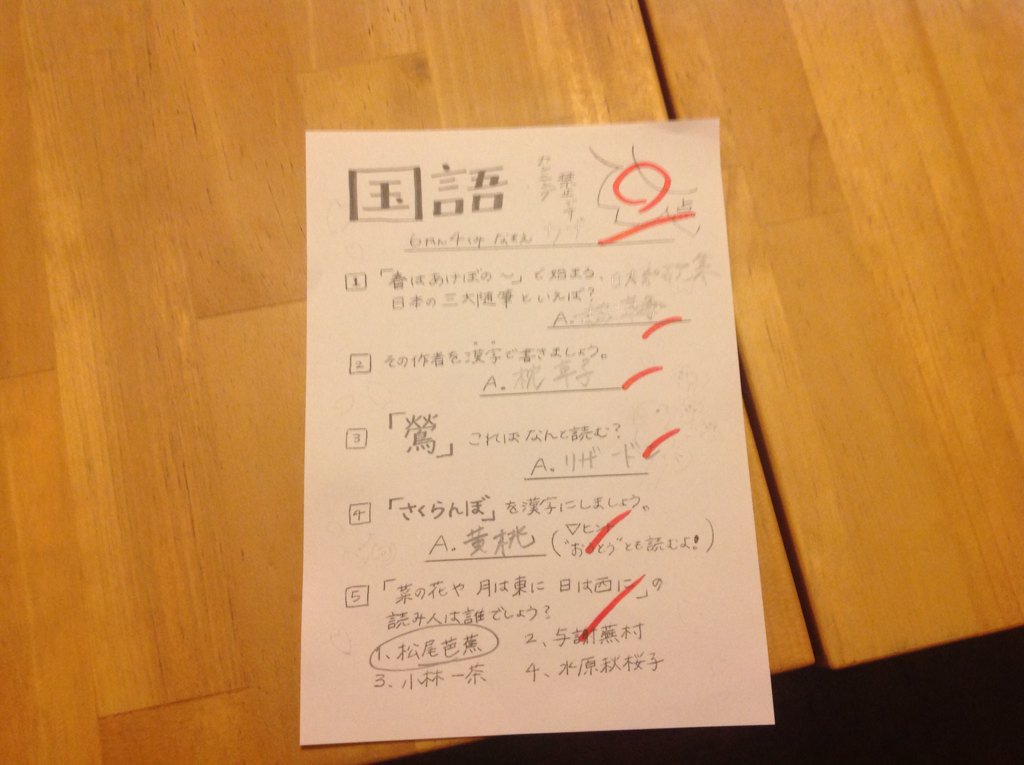 国語
カンニング
禁止です
0点
6月4日 なまえ
1 「春はあけぼの～」で始まる、
日本の三大随筆といえば？
A.
2 その作者を漢字で書きましょう。
A. 枕草子
3 「鶯」これはなんと読む？
A. リザードン
4 「さくらんぼ」を漢字にしましょう。
A. 黄桃 (▽ヒント
"おうとう"とも読むよ!)
5 「菜の花や 月は東に 日は西に」の
読み人は誰でしょう？
1、松尾芭蕉 2、与謝蕪村
3、小林一茶 4、水原秋桜子